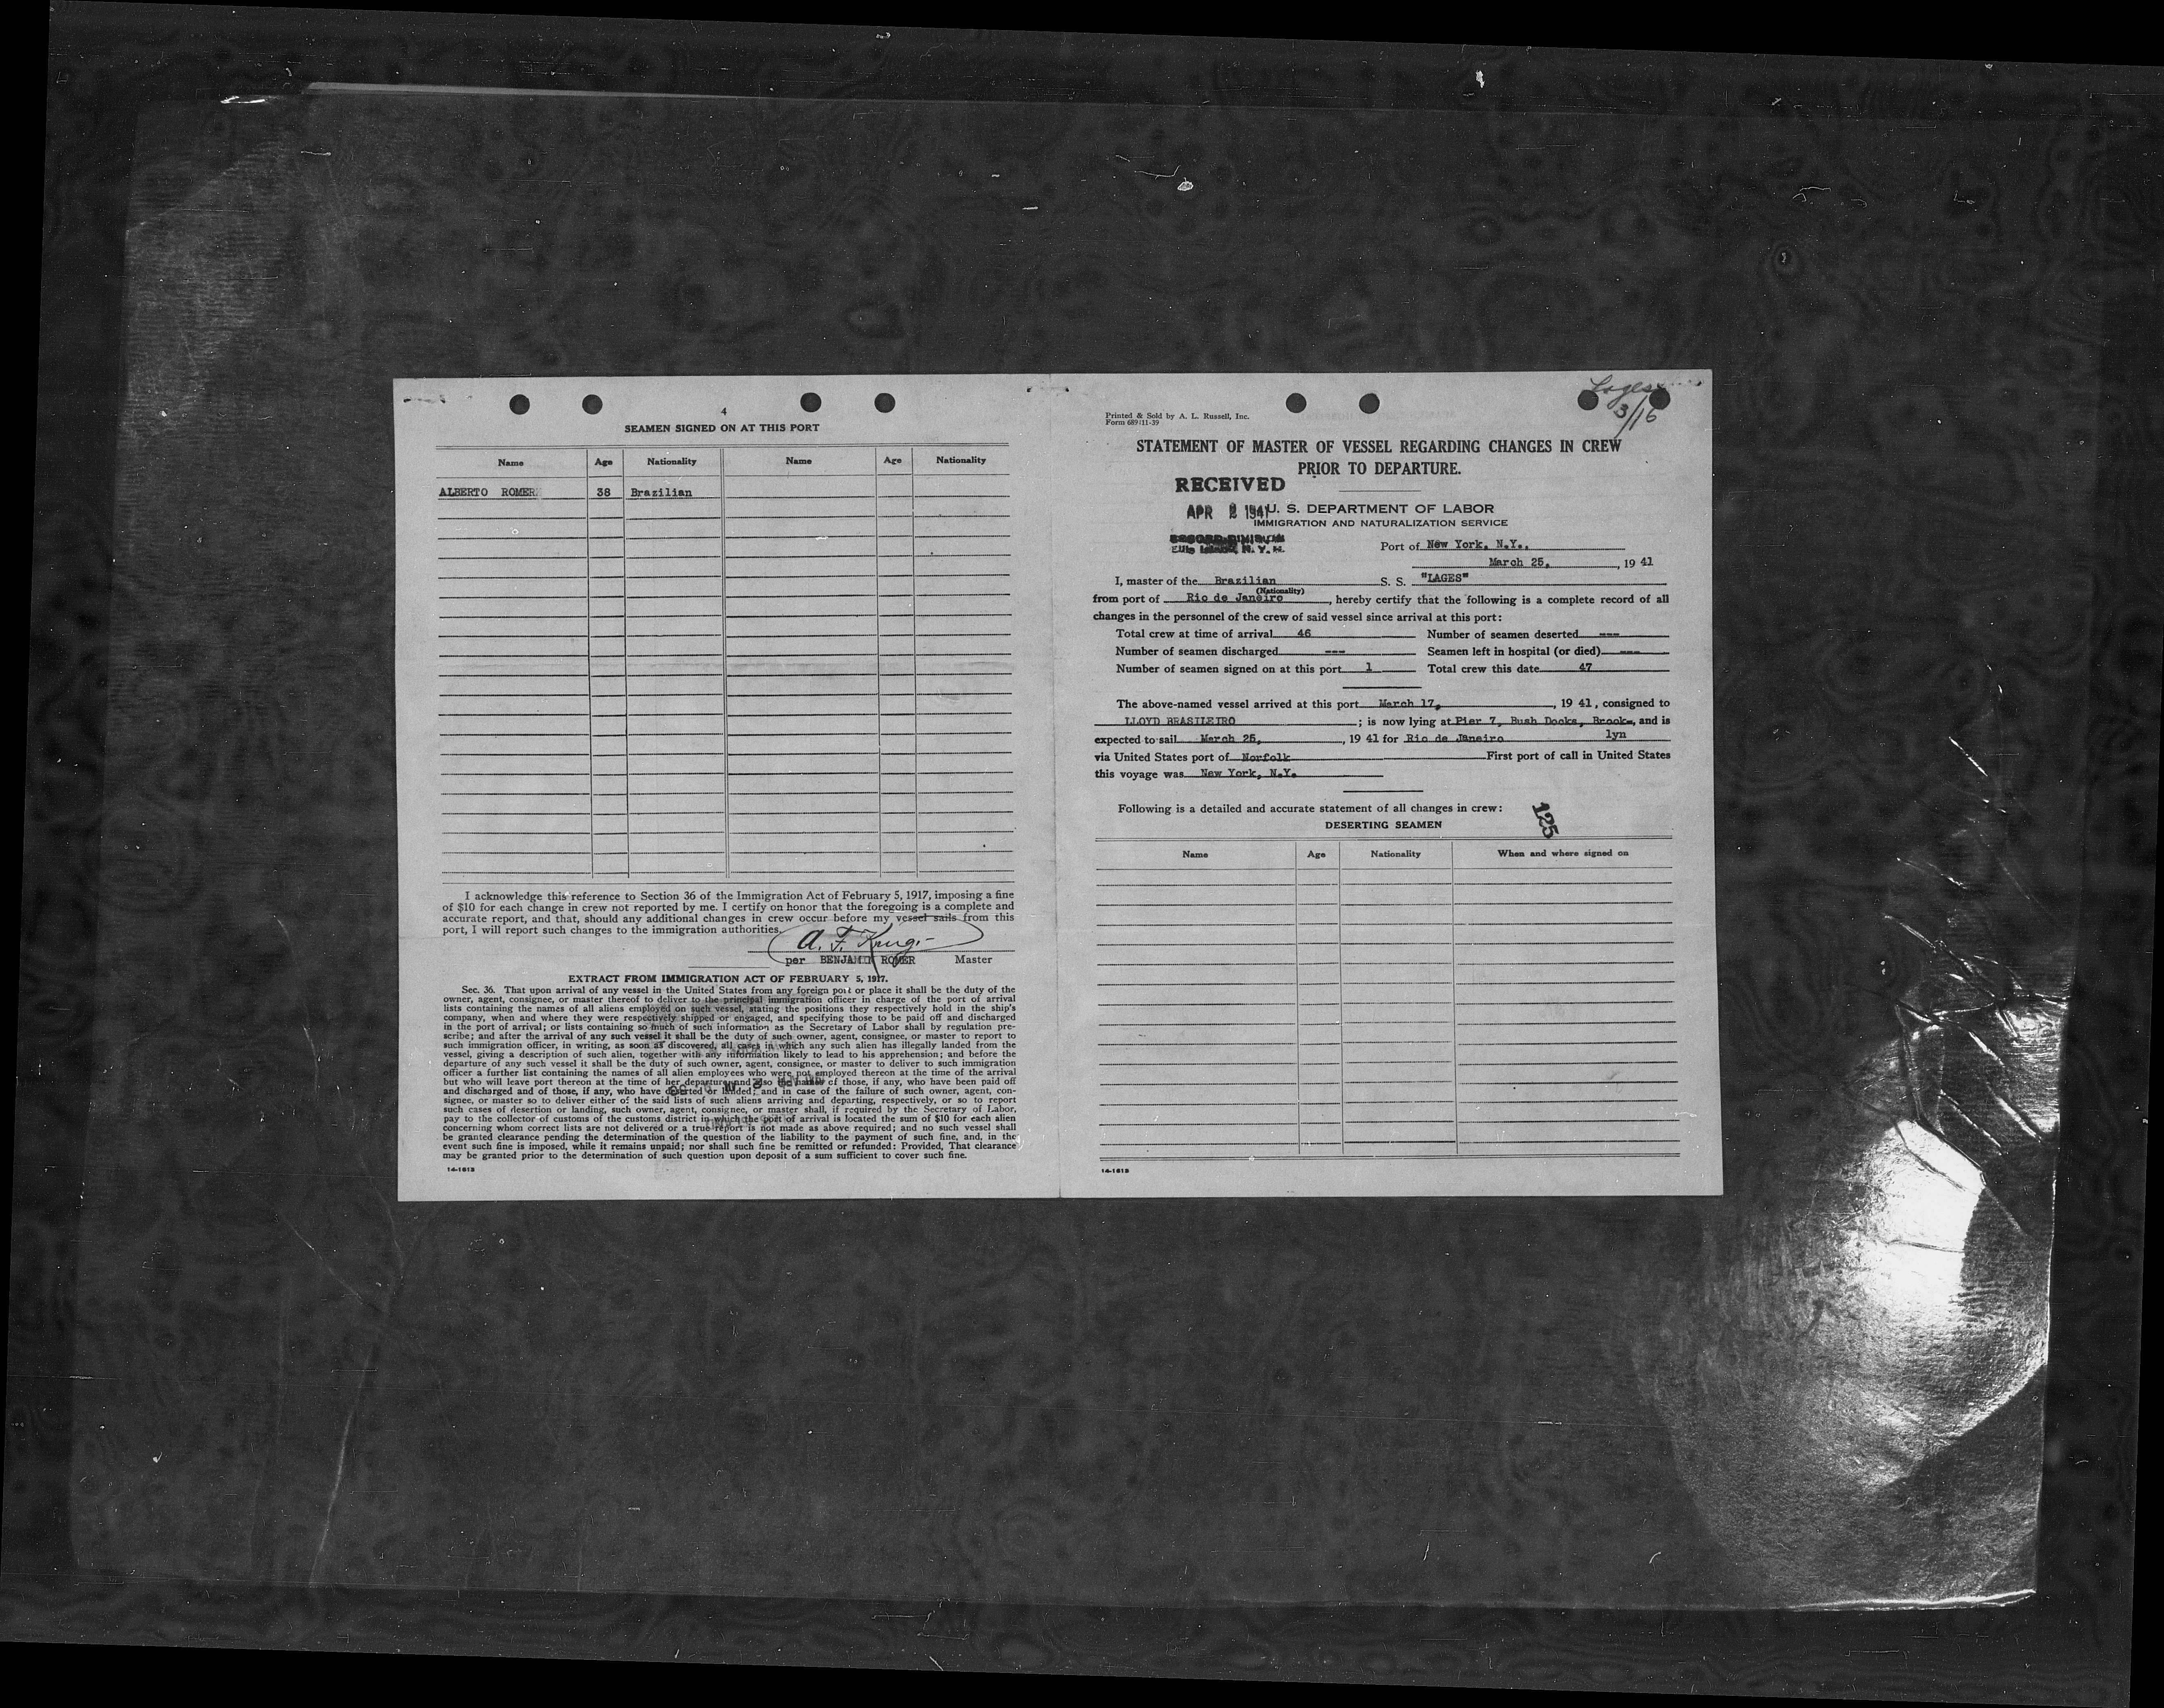 4
SEAMEN SIGNED ON AT THIS PORT
Name Age Nationality Name Age Nationality
ALBERTO ROMER 38 Brazilian
I acknowledge this reference to Section 36 of the Immigration Act of February 5, 1917, imposing a fine
of $10 for each change in crew not reported by me. I certify on honor that the foregoing is a complete and
accurate report, and that, should any additional changes in crew occur before my vessel sails from this
port, I will report such changes to the immigration authorities.
A. F.
per BENJAMIN ROMER Master
EXTRACT FROM IMMIGRATION ACT OF FEBRUARY 5, 1917.
Sec. 36. That upon arrival of any vessel in the United States from any foreign port or place it shall be the duty of the
owner, agent, consignee, or master thereof to deliver to the principal immigration officer in charge of the port of arrival
lists containing the names of all aliens employed on such vessel, stating the positions they respectively hold in the ship's
company, when and where they were respectively shipped or engaged, and specifying those to be paid off and discharged
in the port of arrival; or lists containing so much of such information as the Secretary of Labor shall by regulation pre-
scribe; and after the arrival of any such vessel it shall be the duty of such owner, agent, consignee, or master to report to
such immigration officer, in writing, as soon as discovered, all cases in which any such alien has illegally landed from the
vessel, giving a description of such alien, together with any information likely to lead to his apprehension; and before the
departure of any such vessel it shall be the duty of such owner, agent, consignee, or master to deliver to such immigration
officer a further list containing the names of all alien employees who were not employed thereon at the time of the arrival
but who will leave port thereon at the time of her departure and also the names of those, if any, who have been paid off
and discharged and of those, if any, who have deserted or landed; and in case of the failure of such owner, agent, con-
signee, or master so to deliver either of the said lists of such aliens arriving and departing, respectively, or so to report
such cases of desertion or landing, such owner, agent, consignee, or master shall, if required by the Secretary of Labor,
pay to the collector of customs of the customs district in which the port of arrival is located the sum of $10 for each alien
concerning whom correct lists are not delivered or a true report is not made as above required; and no such vessel shall
be granted clearance pending the determination of the question of the liability to the payment of such fine, and, in the
event such fine is imposed, while it remains unpaid; nor shall such fine be remitted or refunded: Provided, That clearance
may be granted prior to the determination of such question upon deposit of a sum sufficient to cover such fine.
14-1613
Lages
3/16
Printed & Sold by A. L. Russell, Inc.
Form 689/11-39
STATEMENT OF MASTER OF VESSEL REGARDING CHANGES IN CREW
PRIOR TO DEPARTURE.
RECEIVED
APR 2 1941
U. S. DEPARTMENT OF LABOR
IMMIGRATION AND NATURALIZATION SERVICE
RECORD DIVISION
Ellis Island, N. Y. H.
Port of New York, N.Y.,
March 25, 19 41
I, master of the Brazilian S. S. "LAGES"
(Nationality)
from port of Rio de Janeiro, hereby certify that the following is a complete record of all
changes in the personnel of the crew of said vessel since arrival at this port:
Total crew at time of arrival 46 Number of seamen deserted ---
Number of seamen discharged --- Seamen left in hospital (or died) ---
Number of seamen signed on at this port 1 Total crew this date 47
The above-named vessel arrived at this port March 17, , 19 41, consigned to
LLOYD BRASILEIRO ; is now lying at Pier 7, Bush Docks, Brook-, and is
lyn
expected to sail March 25, , 19 41 for Rio de Janeiro
via United States port of Norfolk First port of call in United States
this voyage was New York, N.Y.
Following is a detailed and accurate statement of all changes in crew:
125
DESERTING SEAMEN
Name Age Nationality When and where signed on
14-1613